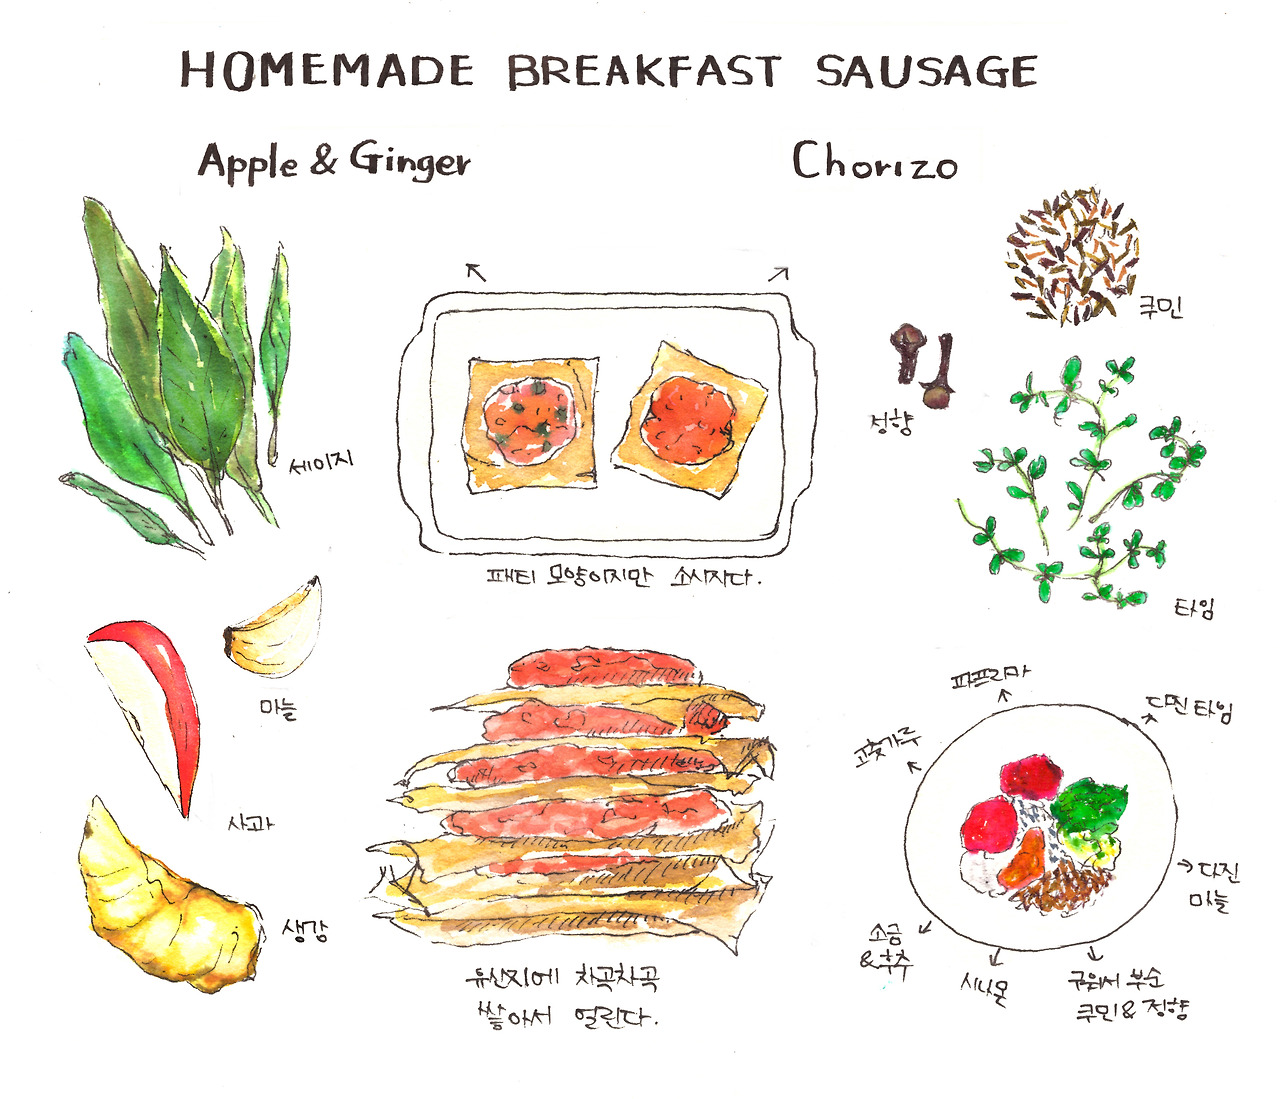 HOMEMADE BREAKFAST SAUSAGE
Apple & Ginger
Chorizo
세이지
마늘
사과
생강
패티 모양이지만 소시지다.
유산지에 차곡차곡
쌓아서 얼린다.
쿠민
정향
타임
파프리카
다진 타임
고춧가루
다진
마늘
소금
&후추
시나몬
구워서 부순
쿠민 & 정향